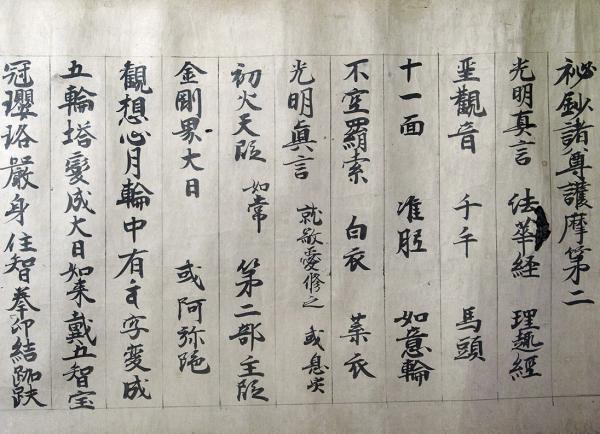 秘鈔諸尊護摩第二
光明真言 法華経 理趣経
聖觀音 千手 馬頭
十一面 准胝 如意輪
不空羂索 白衣 葉衣
光明眞言 就敬愛修之 或息災
初火天段 如常 第二部主段
金剛界大日 或阿弥陁
觀想心月輪中有 字変成
五輪塔變成大日如来戴五智宝
冠瓔珞嚴身住智拳印結跏趺